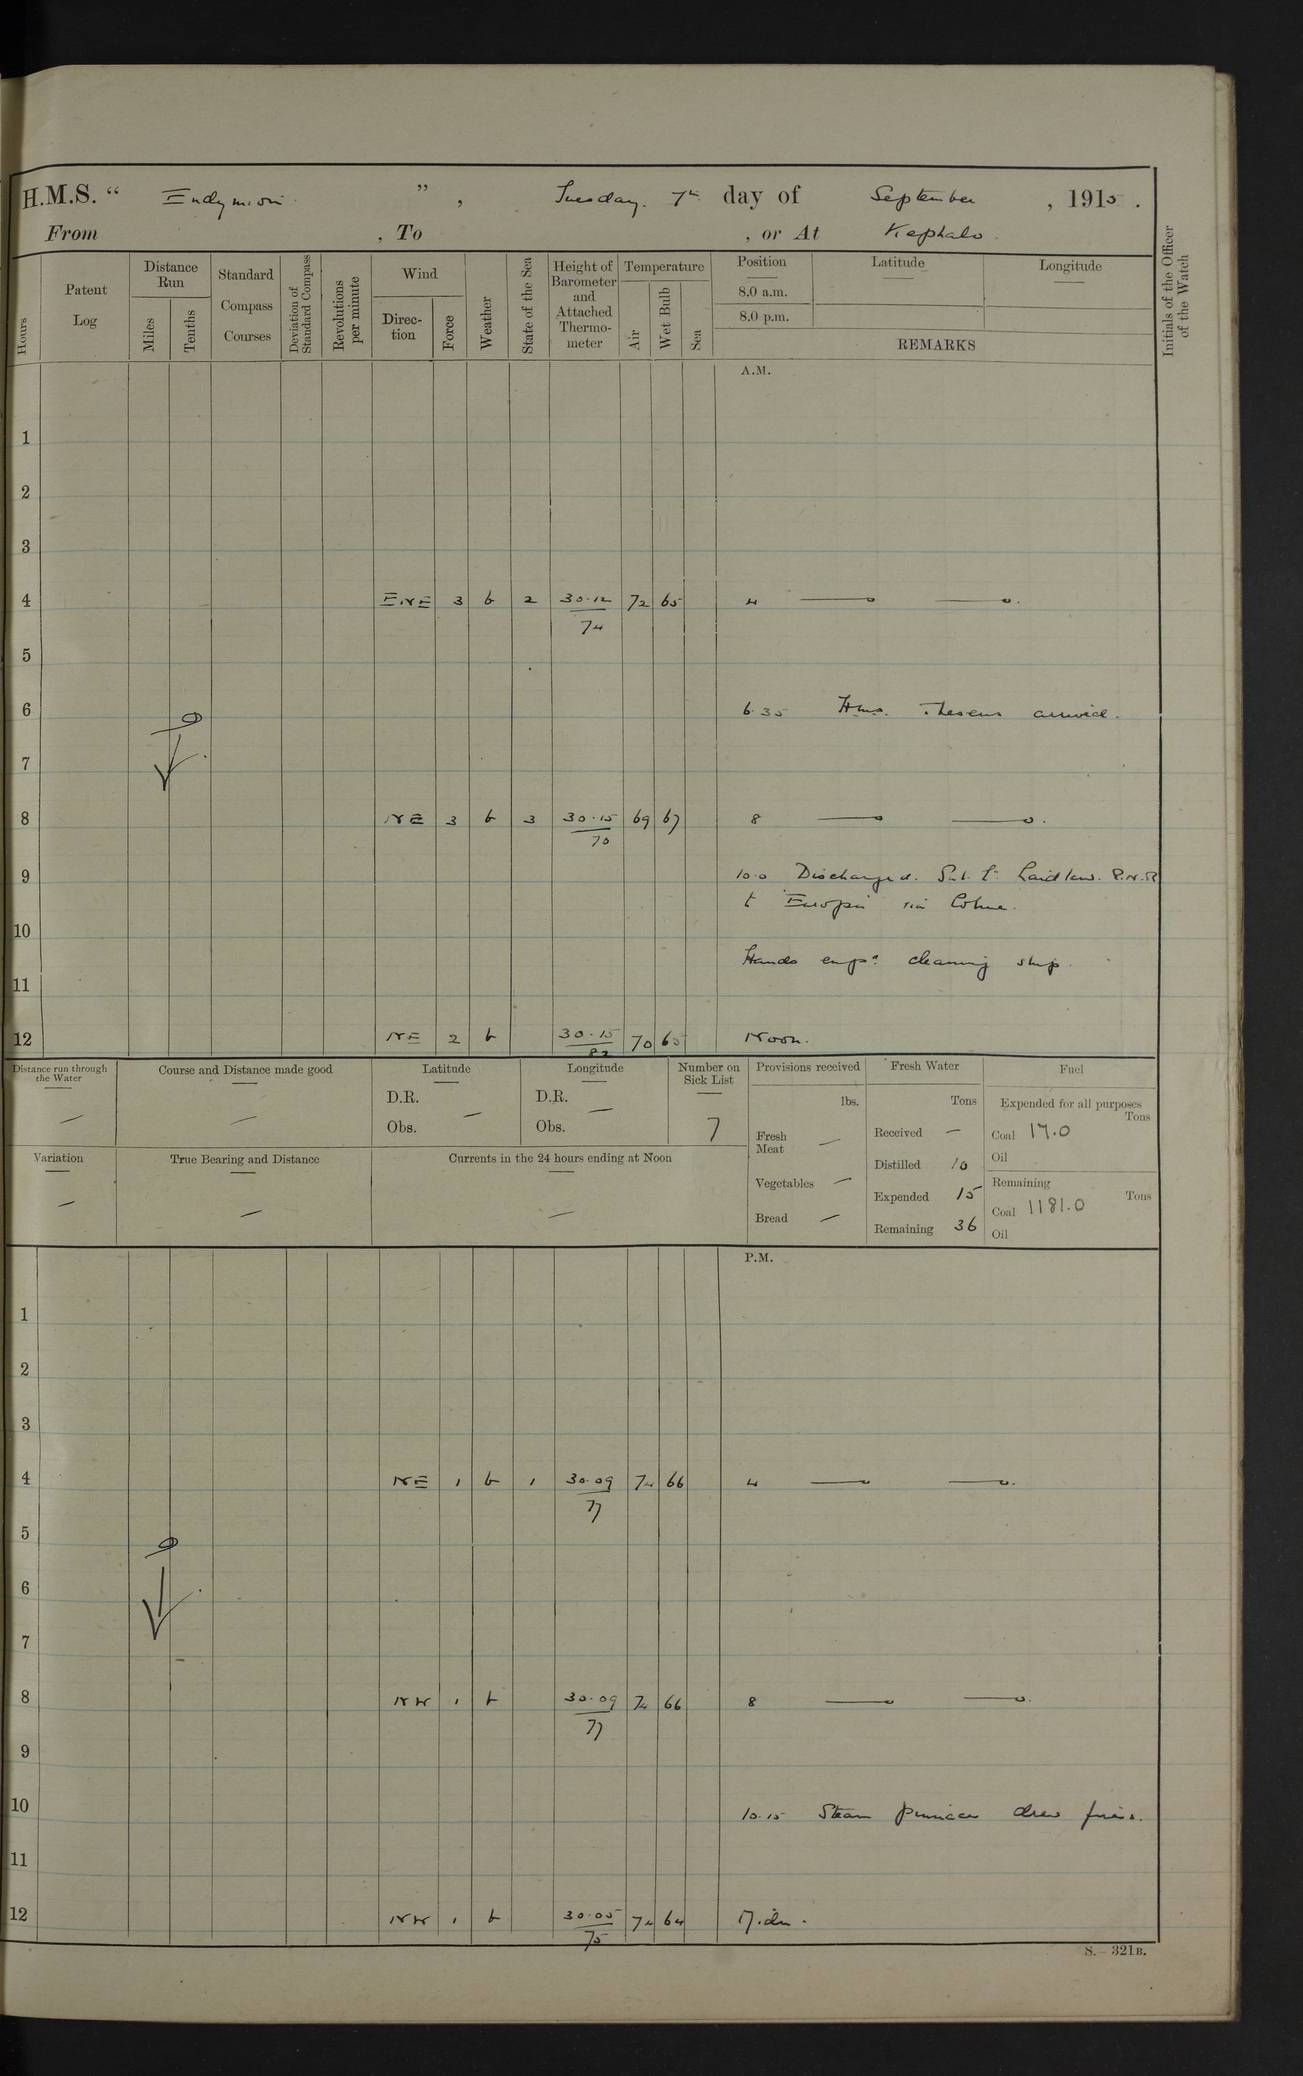 H.M.S. “ Endymion ” , Tuesday. 7th day of September , 1915 .
From , To , or At Kephalo.
Hours
Patent Log
Distance Run
Miles
Tenths
Standard Compass Courses
Deviation of Standard Compass
Revolutions per minute
Wind
Direc-tion
Force
Weather
State of the Sea
Height of Barometer and Attached Thermo-meter
Temperature
Air
Wet Bulb
Sea
Position
8.0 a.m.
8.0 p.m.
Latitude
Longitude
REMARKS
Initials of the Officer of the Watch
A.M.
1
2
3
4 E.NE 3 b 2 30.12 72 65 4
74
5
6 6.35 Hms. Theseus arrived.
7
8 NE 3 b 3 30.15 69 67 8
70
9 10.0 Discharged. Sub. Lt. Laidlaw. R.N.R
t Europa via Colne.
10
Hands empd. cleaning ship.
11
12 NE 2 b 30.15 70 65 Noon.
82
Distance run through the Water
Course and Distance made good
Latitude
D.R.
Obs.
Longitude
D.R.
Obs.
Number on Sick List
7
Provisions received
lbs.
Fresh Meat
Vegetables
Bread
Fresh Water
Tons
Received
Distilled 10
Expended 15
Remaining 36
Fuel
Expended for all purposes
Tons
Coal 17.0
Oil
Remaining
Tons
Coal 1181.0
Oil
Variation
True Bearing and Distance
Currents in the 24 hours ending at Noon
P.M.
1
2
3
4 NE 1 b 1 30.09 74 66 4
77
5
6
7
8 NW 1 b 30.09 74 66 8
77
9
10 10.15 Steam pinnace drew fires.
11
12 NW 1 b 30.05 74 64 Midn.
75
S.— 321B.